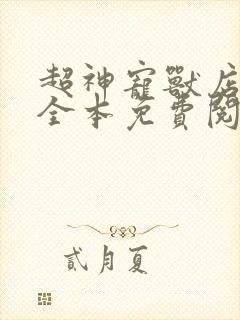 超神寵獸店
全本免費閱
貳月夏